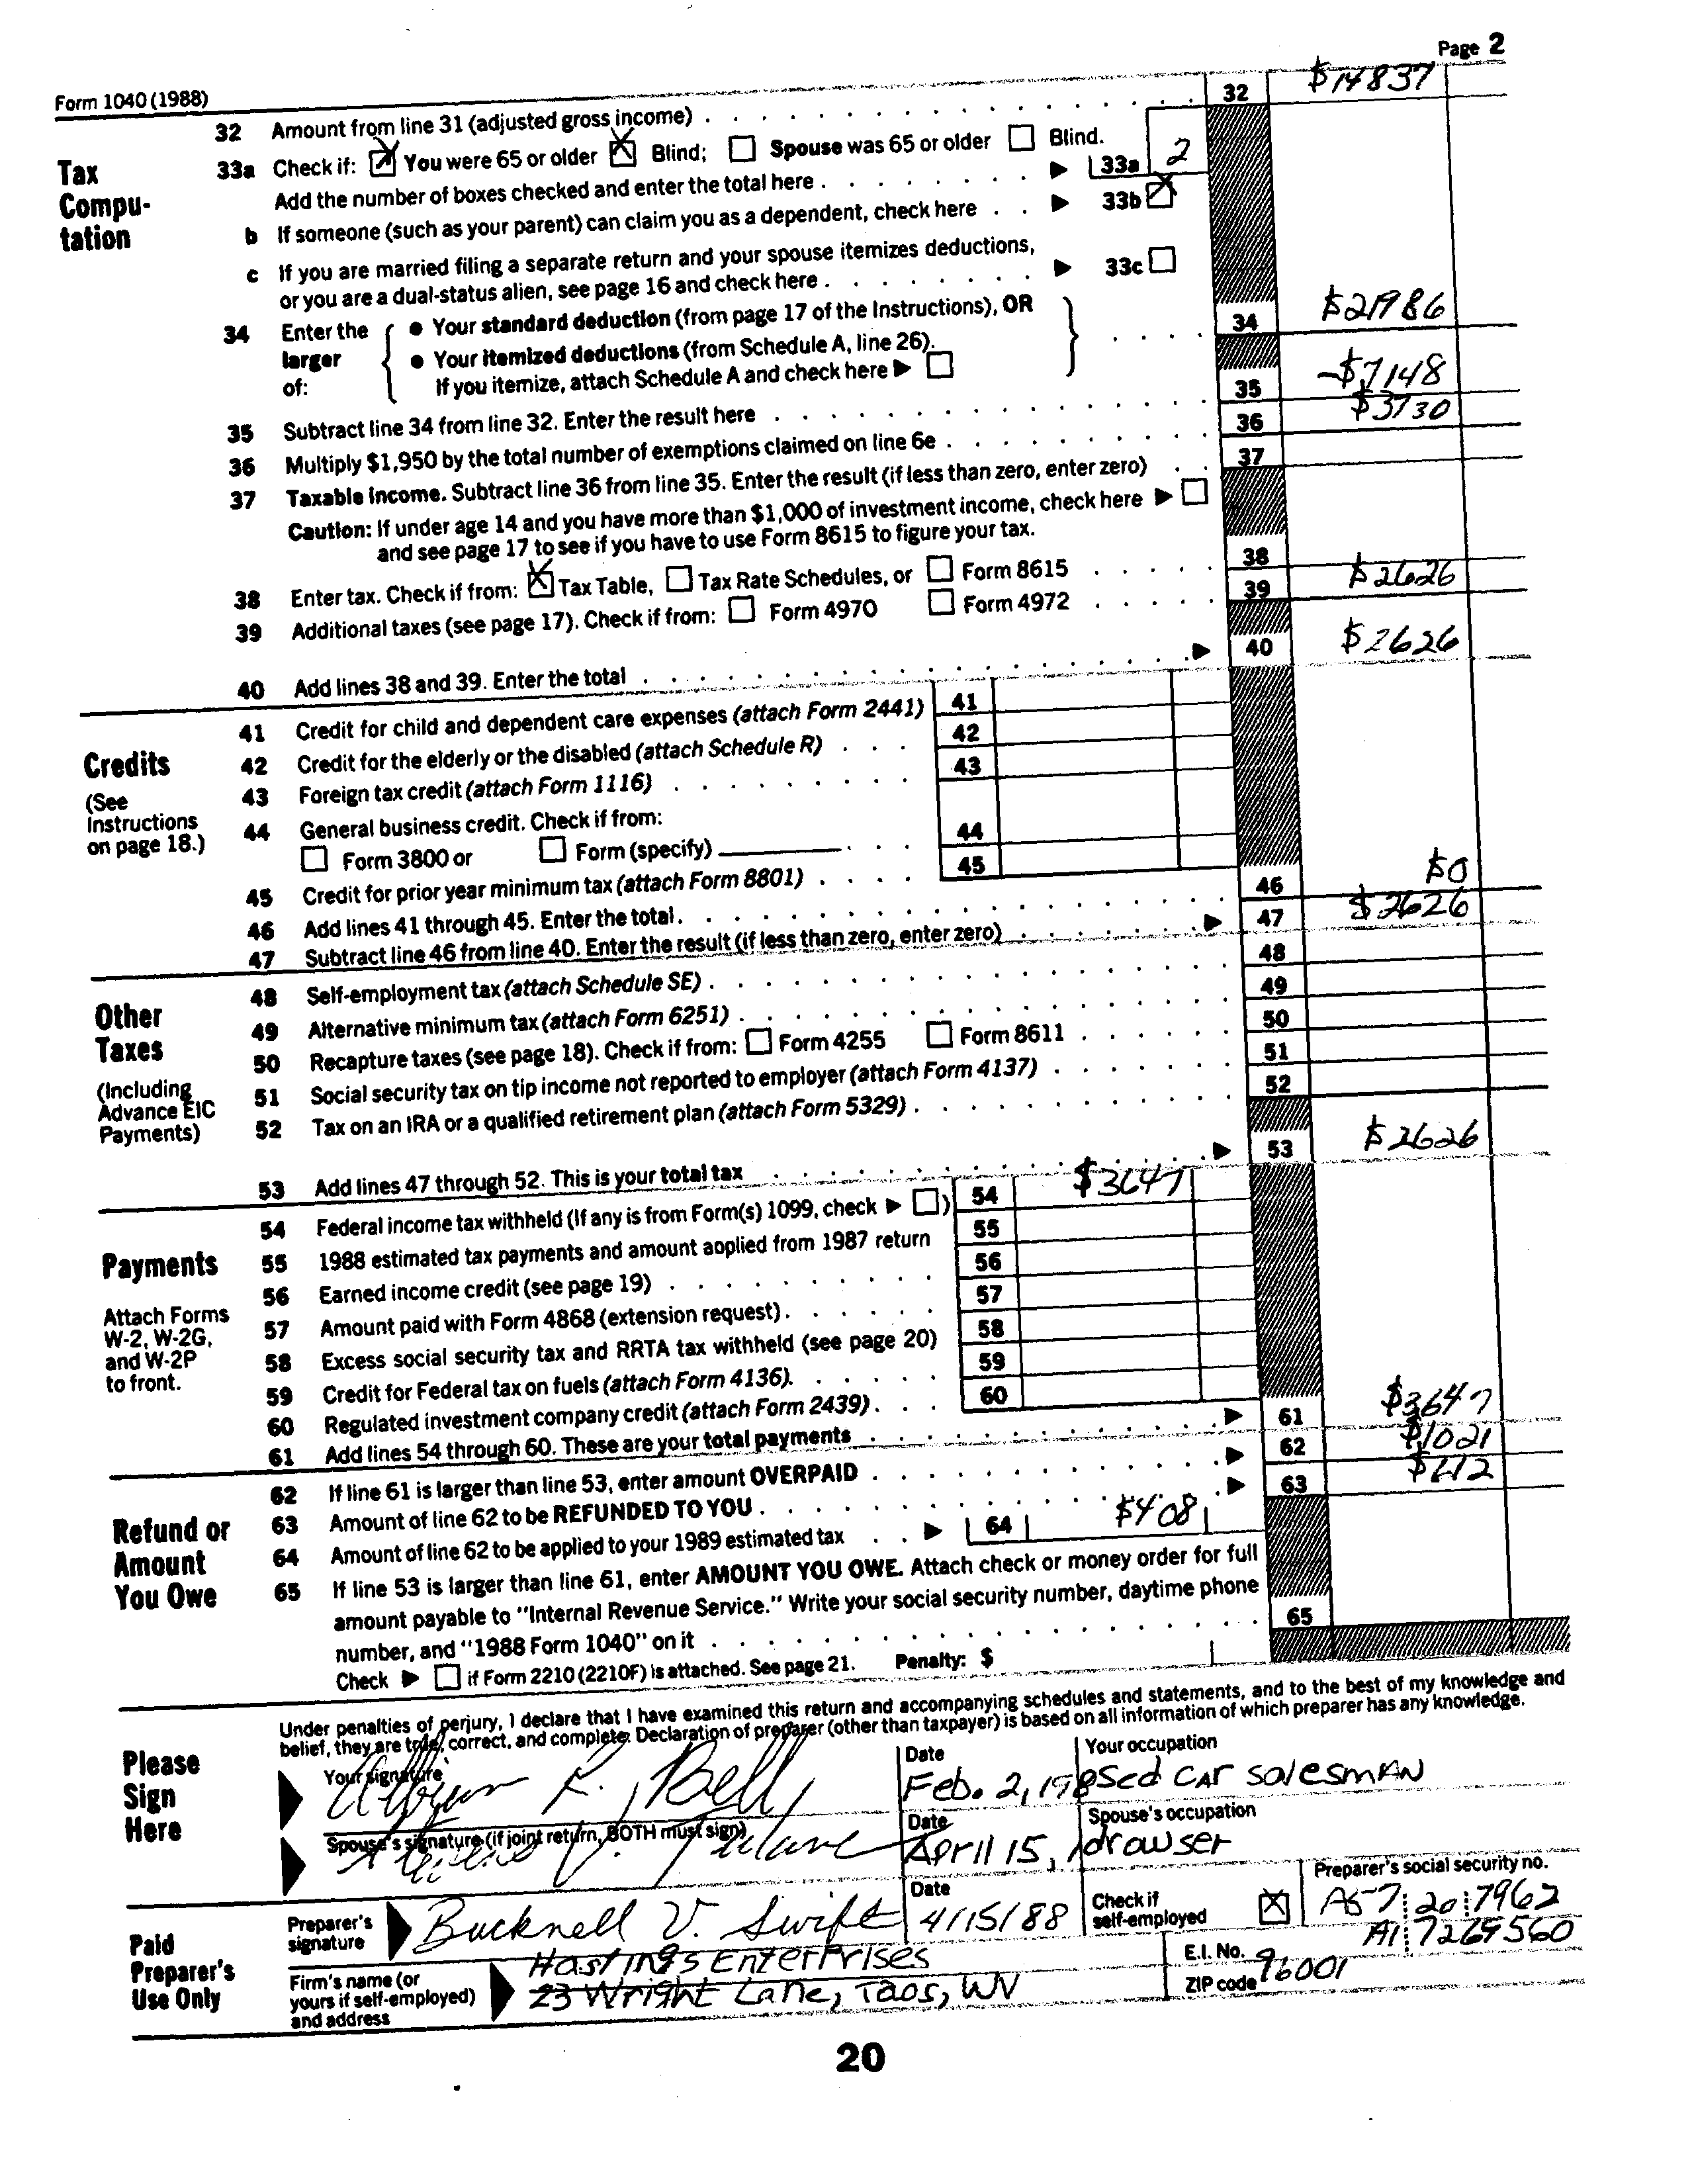 Page 2
Form 1040 (1988)
32 Amount from line 31 (adjusted gross income) 32 $14837
Tax Compu-tation
33a Check if: [X] You were 65 or older [X] Blind; [ ] Spouse was 65 or older [ ] Blind.
Add the number of boxes checked and enter the total here 33a 2
b If someone (such as your parent) can claim you as a dependent, check here 33b [X]
c If you are married filing a separate return and your spouse itemizes deductions,
or you are a dual-status alien, see page 16 and check here 33c [ ]
34 Enter the larger of: { • Your standard deduction (from page 17 of the Instructions), OR
• Your itemized deductions (from Schedule A, line 26).
If you itemize, attach Schedule A and check here ▶ [ ] } 34 $21986
35 Subtract line 34 from line 32. Enter the result here 35 -$7148
36 Multiply $1,950 by the total number of exemptions claimed on line 6e 36 $3730
37 Taxable income. Subtract line 36 from line 35. Enter the result (if less than zero, enter zero) 37
Caution: If under age 14 and you have more than $1,000 of investment income, check here ▶ [ ]
and see page 17 to see if you have to use Form 8615 to figure your tax.
38 Enter tax. Check if from: [X] Tax Table, [ ] Tax Rate Schedules, or [ ] Form 8615 38
39 Additional taxes (see page 17). Check if from: [ ] Form 4970 [ ] Form 4972 39 $2626
40 Add lines 38 and 39. Enter the total ▶ 40 $2626
Credits
(See Instructions on page 18.)
41 Credit for child and dependent care expenses (attach Form 2441) 41
42 Credit for the elderly or the disabled (attach Schedule R) 42
43 Foreign tax credit (attach Form 1116) 43
44 General business credit. Check if from:
[ ] Form 3800 or [ ] Form (specify) 44
45 Credit for prior year minimum tax (attach Form 8801) 45
46 Add lines 41 through 45. Enter the total 46 $0
47 Subtract line 46 from line 40. Enter the result (if less than zero, enter zero) ▶ 47 $2626
Other Taxes
(Including Advance EIC Payments)
48 Self-employment tax (attach Schedule SE) 48
49 Alternative minimum tax (attach Form 6251) 49
50 Recapture taxes (see page 18). Check if from: [ ] Form 4255 [ ] Form 8611 50
51 Social security tax on tip income not reported to employer (attach Form 4137) 51
52 Tax on an IRA or a qualified retirement plan (attach Form 5329) 52
53 Add lines 47 through 52. This is your total tax ▶ 53 $2626
Payments
Attach Forms W-2, W-2G, and W-2P to front.
54 Federal income tax withheld (If any is from Form(s) 1099, check ▶ [ ]) 54 $3647
55 1988 estimated tax payments and amount applied from 1987 return 55
56 Earned income credit (see page 19) 56
57 Amount paid with Form 4868 (extension request) 57
58 Excess social security tax and RRTA tax withheld (see page 20) 58
59 Credit for Federal tax on fuels (attach Form 4136) 59
60 Regulated investment company credit (attach Form 2439) 60
61 Add lines 54 through 60. These are your total payments ▶ 61 $3647
Refund or Amount You Owe
62 If line 61 is larger than line 53, enter amount OVERPAID ▶ 62 $1021
63 Amount of line 62 to be REFUNDED TO YOU ▶ 63 $612
64 Amount of line 62 to be applied to your 1989 estimated tax ▶ 64 $408
65 If line 53 is larger than line 61, enter AMOUNT YOU OWE. Attach check or money order for full
amount payable to "Internal Revenue Service." Write your social security number, daytime phone
number, and "1988 Form 1040" on it 65
Check ▶ [ ] if Form 2210 (2210F) is attached. See page 21. Penalty: $
Please Sign Here
Under penalties of perjury, I declare that I have examined this return and accompanying schedules and statements, and to the best of my knowledge and
belief, they are true, correct, and complete. Declaration of preparer (other than taxpayer) is based on all information of which preparer has any knowledge.
Your signature R. Bell Date Feb. 2, 198 Your occupation used car salesman
Spouse's signature (if joint return, BOTH must sign) Date April 15, Spouse's occupation drowser
Paid Preparer's Use Only
Preparer's signature Bucknell V. Swift Date 4/15/88 Check if self-employed [X] Preparer's social security no. A57 20 7962
Firm's name (or yours if self-employed) and address Hastings Enterprises E.I. No. A1 7269560
23 Wright Lane, Taos, WV ZIP code 96001
20